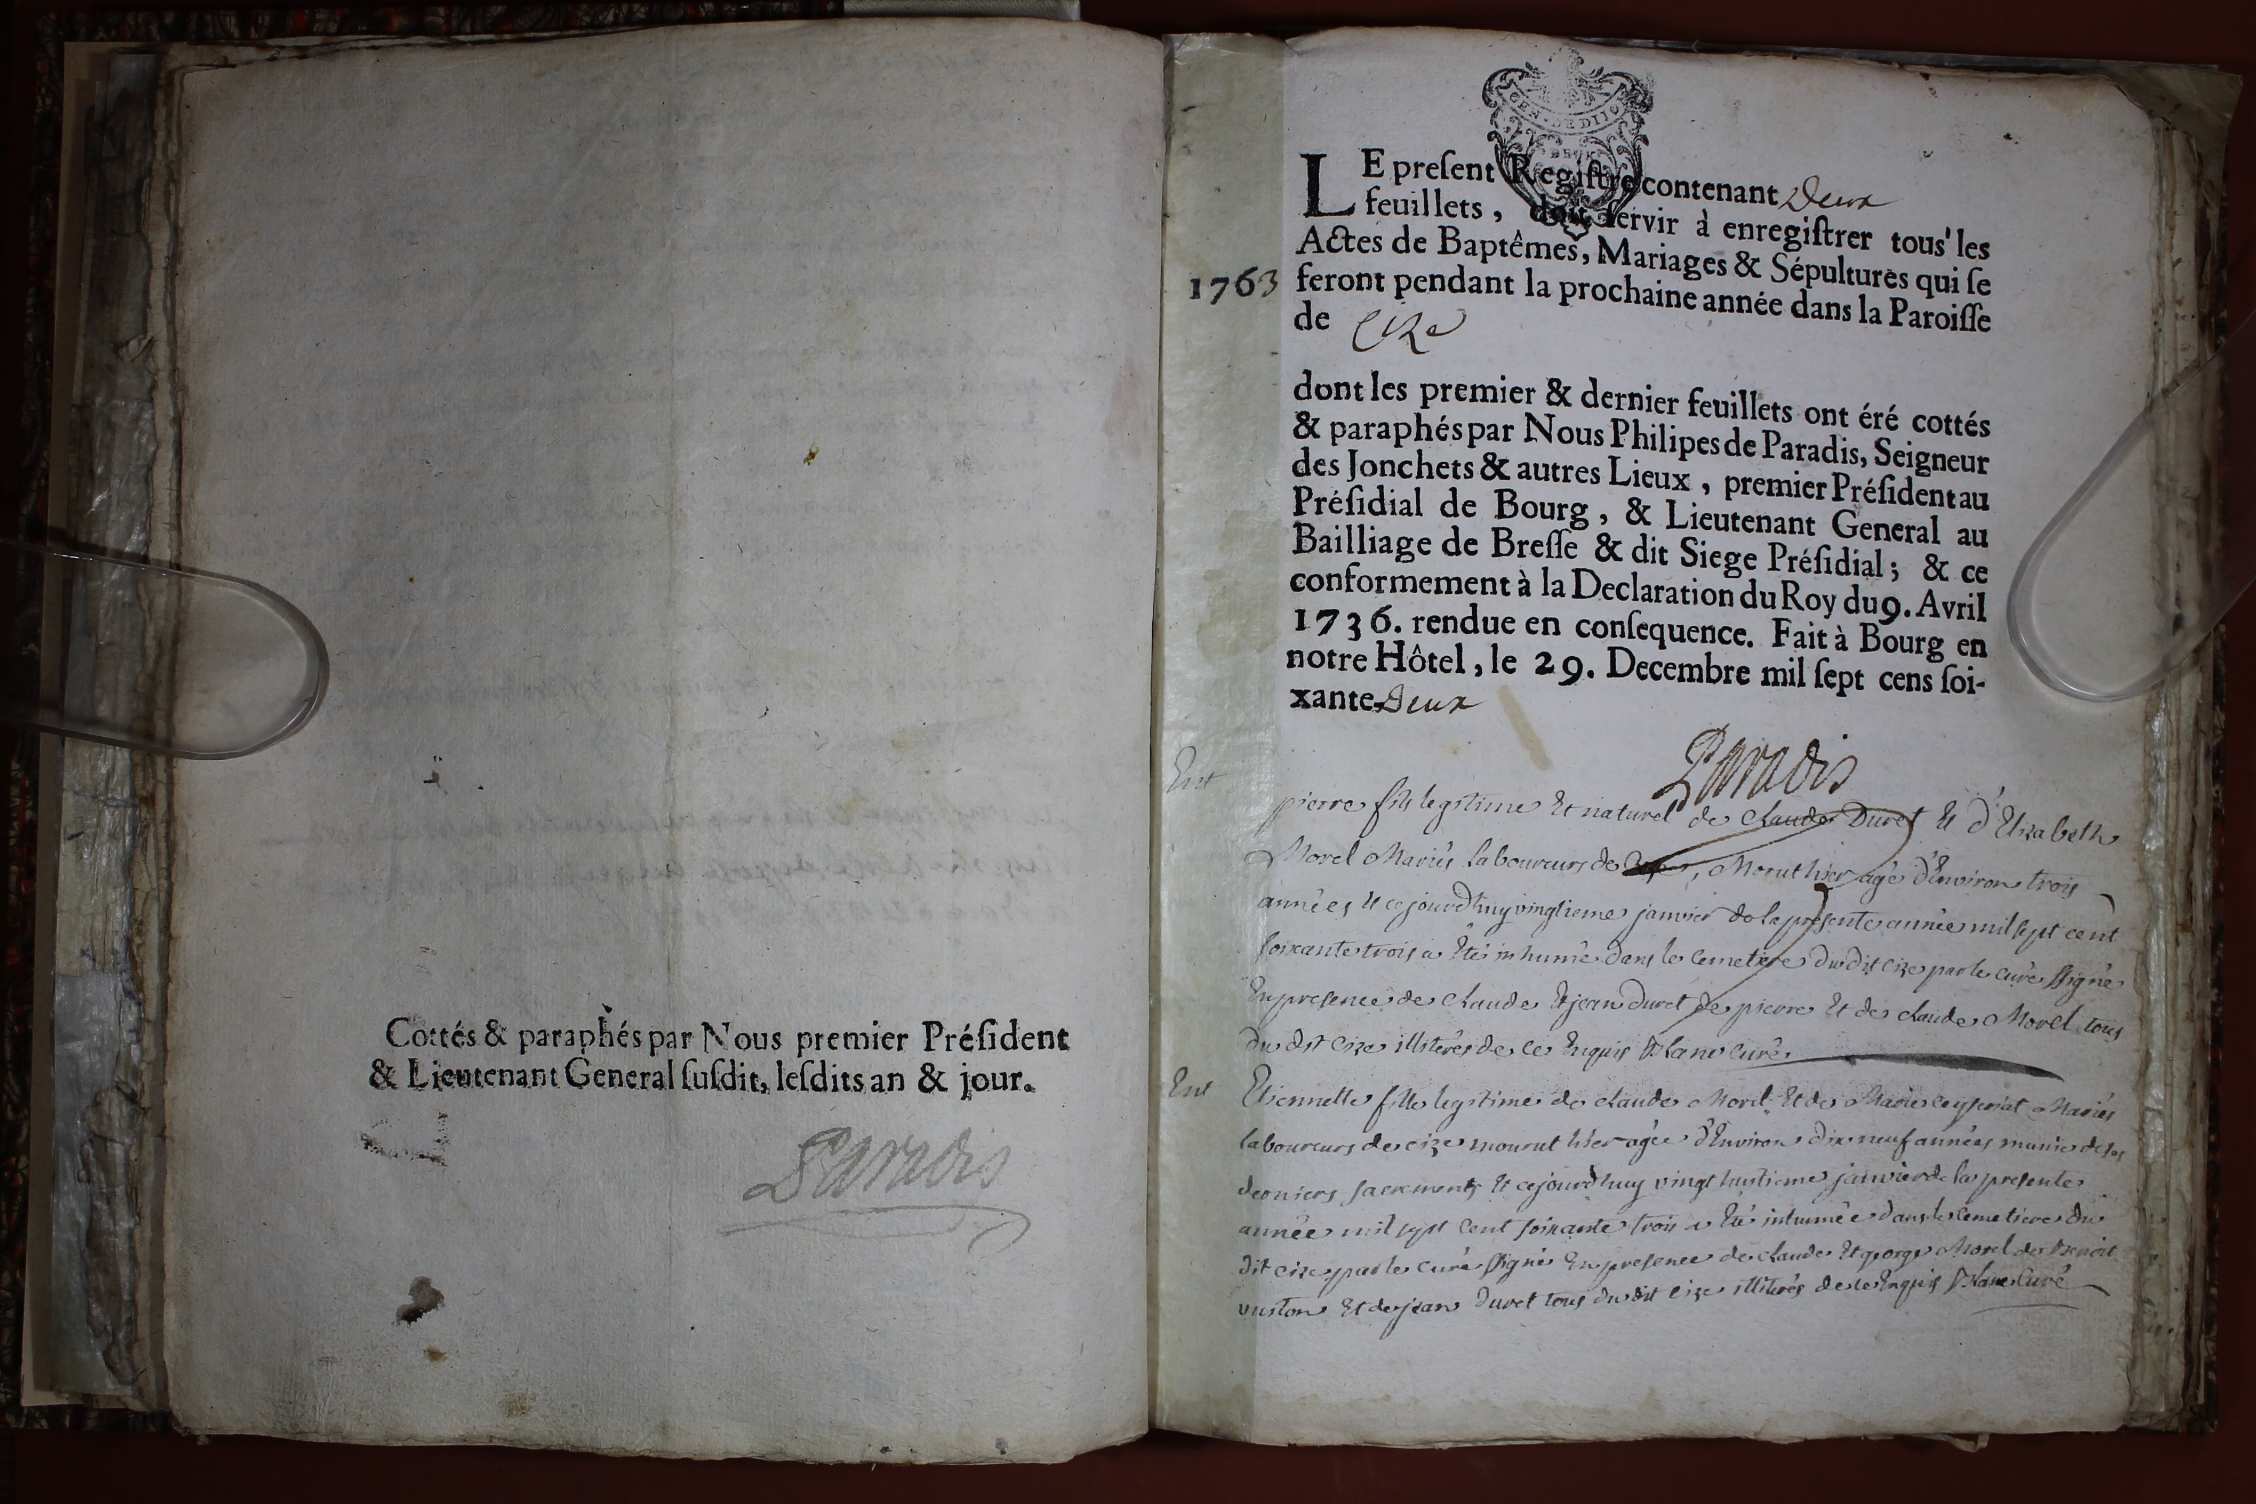 Cottés & paraphés par Nous premier Préſident
& Lieutenant General ſuſdit, leſdits an & jour.
Paradis
GEN. DE DIJON
LE preſent Regiſtre contenant Deux
feuillets, doit ſervir à enregiſtrer tous les
Actes de Baptêmes, Mariages & Sépultures qui ſe
1763 feront pendant la prochaine année dans la Paroiſſe
de Cize
dont les premier & dernier feuillets ont éré cottés
& paraphés par Nous Philipes de Paradis, Seigneur
des Jonchets & autres Lieux, premier Préſident au
Préſidial de Bourg, & Lieutenant General au
Bailliage de Breſſe & dit Siege Préſidial; & ce
conformement à la Declaration du Roy du 9. Avril
1736. rendue en conſequence. Fait à Bourg en
notre Hôtel, le 29. Decembre mil ſept cens ſoi-
xante-Deux
Paradis
Ent
pierre fils legitime Et naturel de Claude Duret Et d'Elizabeth
Morel Mariés laboureurs de Mourut hier agé d'Environ trois
années Et cejourdhuy vingtieme janvier de la presente année mil sept cent
soixante trois a Eté inhumé dans le Cemetiere du dit cize par le curé ssigné
En presence de Claude Et jean duret de pierre Et de claude Morel tous
du dit Cize illiterés de ce Enquis Blanc curé
Ent Etiennette fille legitime de claude Morel Et de Marie ceyseriat Mariés
laboureurs de cize mourut hier agée d'Environ dix neuf années munie de ses
derniers sacrements Et cejourdhuy vingt huitieme janvier de la presente
année mil sept cent soixante trois a Eté inhumée dans le cemetiere du
dit cize par le curé ssigné En presence de claude Et george Morel de Benoit
vuiton Et de jean duret tous du dit Cize illiterés de ce Enquis Blanc Curé